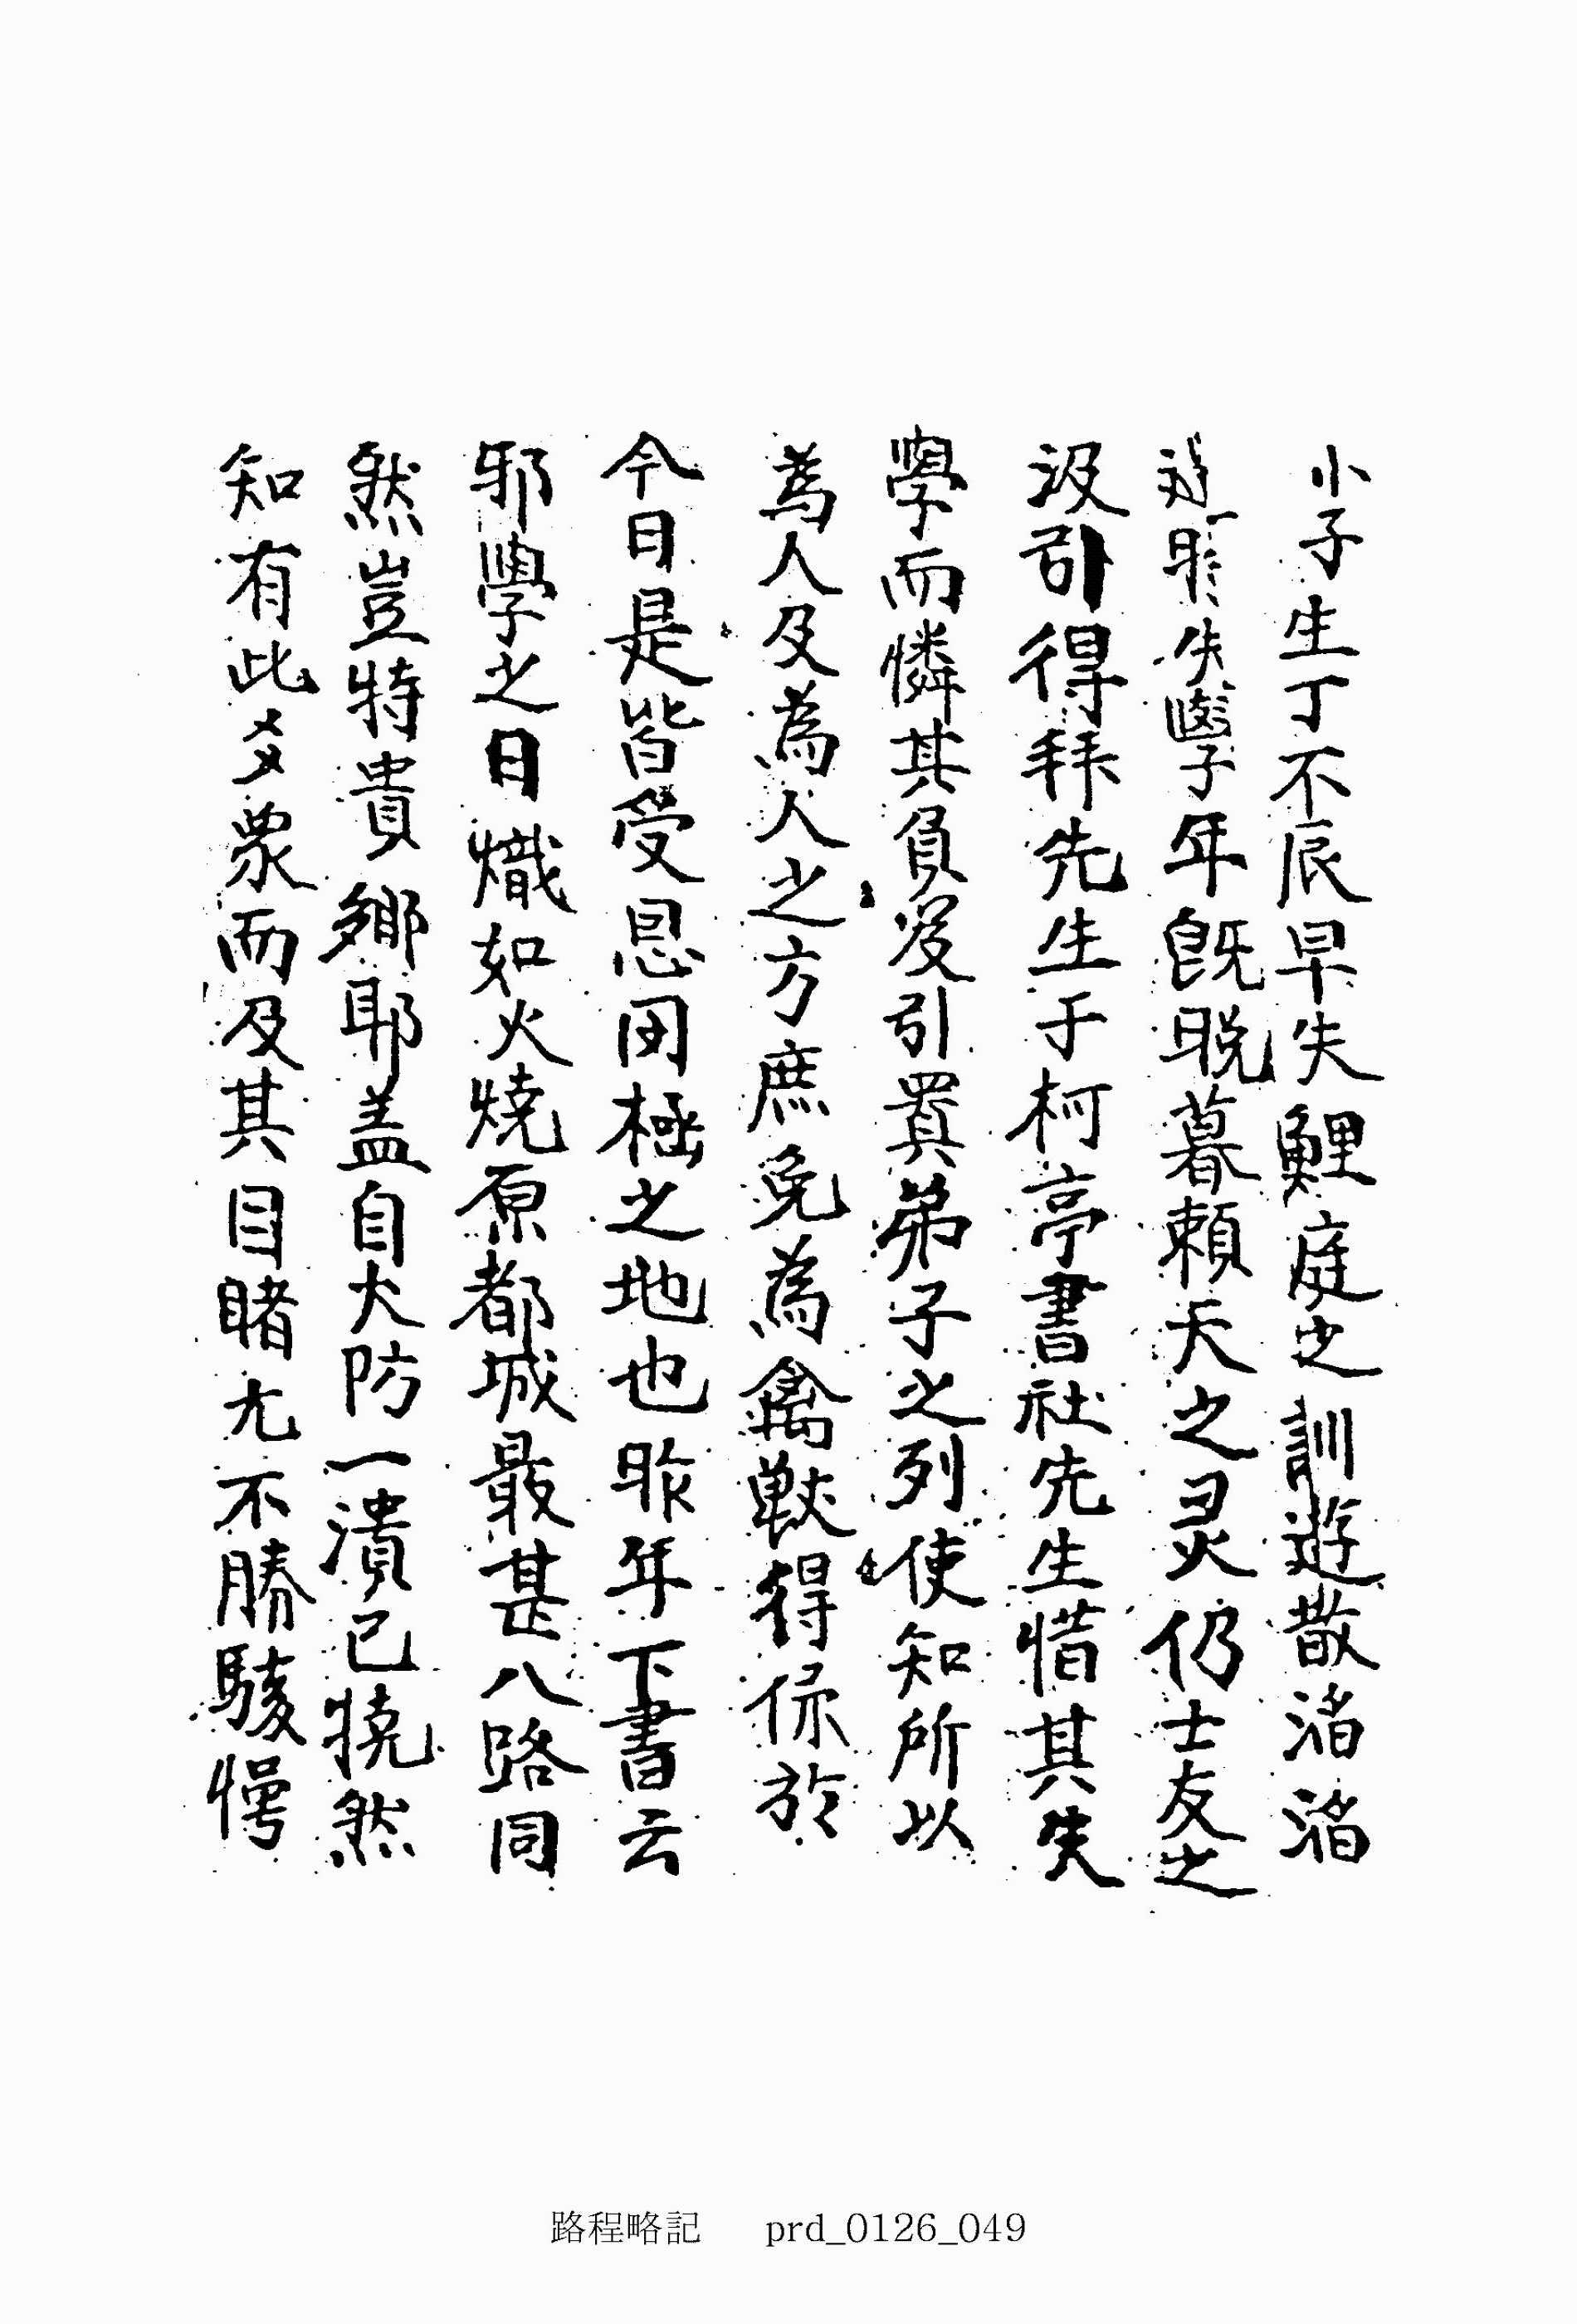 小子生丁不辰早失鯉庭之訓遊散渚渚
昨失學年既晼暮賴天之灵仍士友之
汲引得拜先生于柯亭書社先生惜其失
學而憐其負笈引置弟子之列使知所以
為人及為人之方庶免為禽獸得保於
今日是皆受恩罔極之地也昨年下書云
邪學之日熾如火燒原都城最甚八路同
然豈特貴鄉耶盖自大防一潰已犹然
知有此多衆而及其目睹尤不勝駭愕
路程略記 prd_0126_049